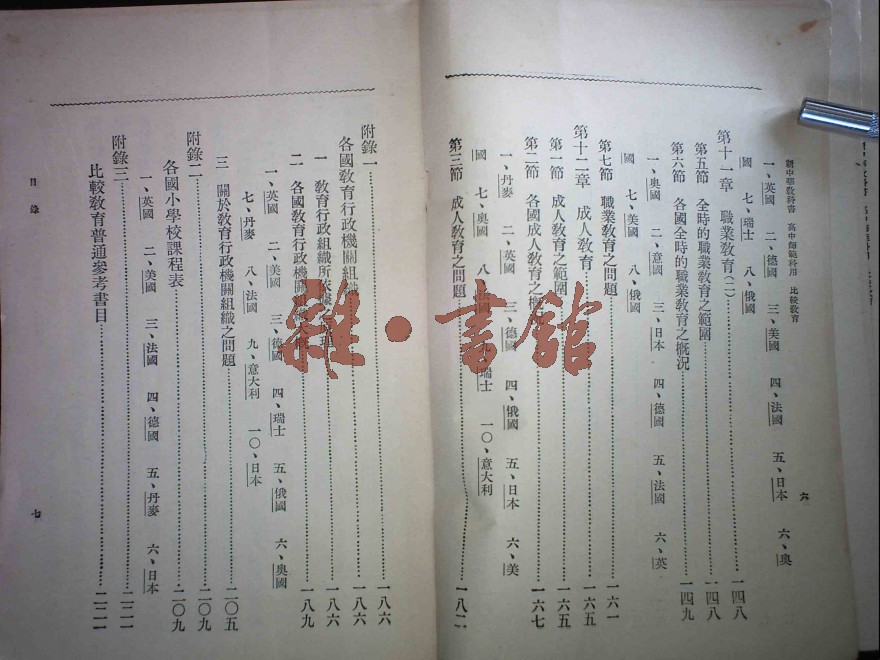 新中華教科書　高中師範科用　比較教育
六
一、英國　二、德國　三、美國　四、法國　五、日本　六、奧
國　七、瑞士　八、俄國
第十一章　職業教育(二)……一四八
第五節　全時的職業教育之範圍……一四八
第六節　各國全時的職業教育之概況……一四九
一、奧國　二、意國　三、日本　四、德國　五、法國　六、英
國　七、美國　八、俄國
第七節　職業教育之問題……一六一
第十二章　成人教育……一六五
第一節　成人教育之範圍……一六五
第二節　各國成人教育之概……一六七
一、丹麥　二、英國　三、德國　四、俄國　五、日本　六、美
國　七、奧國　八、法國　瑞士　一〇、意大利
第三節　成人教育之問題……一八二
附錄一……一八六
各國教育行政機關組織……一八六
一　教育行政組織所依據之……一八六
二　各國教育行政機關組織……一八九
一、英國　二、美國　三、德國　四、瑞士　五、俄國　六、奧國
七、丹麥　八、法國　九、意大利　一〇、日本
三　關於教育行政機關組織之問題……二〇五
附錄二……二〇九
各國小學校課程表……二〇九
一、英國　二、美國　三、法國　四、德國　五、丹麥　六、日本
附錄三……二二一
比較教育普通參考書目……二二一
目錄
七
雜·書館